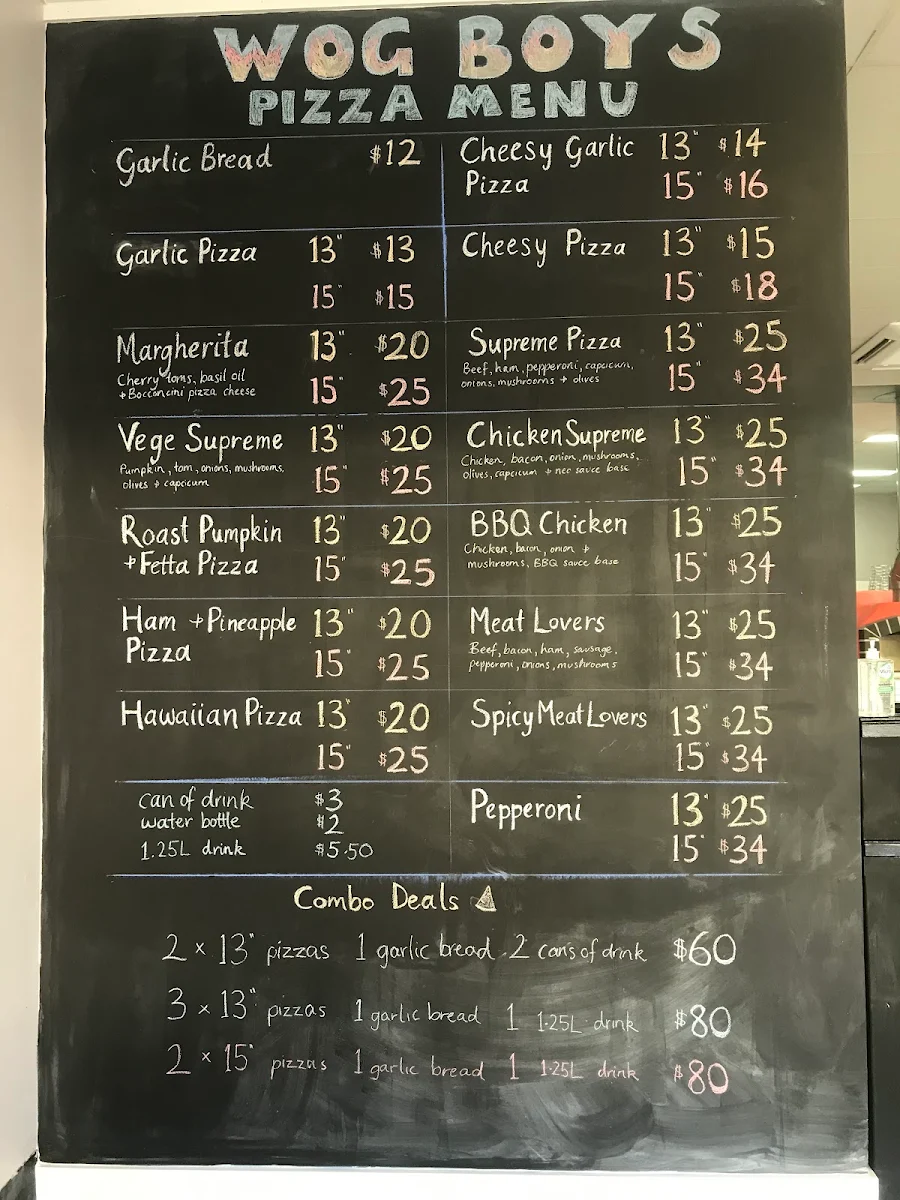 WOG BOYS
PIZZA MENU
Garlic Bread $12
Cheesy Garlic 13" $14
Pizza 15" $16
Garlic Pizza 13" $13
15" $15
Cheesy Pizza 13" $15
15" $18
Margherita 13" $20
Cherry toms, basil oil
+ Bocconcini pizza cheese 15" $25
Supreme Pizza 13" $25
Beef, ham, pepperoni, capcicum,
onions, mushrooms + olives 15" $34
Vege Supreme 13" $20
Pumpkin, tom, onions, mushrooms,
olives + capcicum 15" $25
Chicken Supreme 13" $25
Chicken, bacon, onion, mushrooms,
olives, capcicum + nec sauce base 15" $34
Roast Pumpkin 13" $20
+Fetta Pizza 15" $25
BBQ Chicken 13" $25
Chicken, bacon, onion +
mushrooms, BBQ sauce base 15" $34
Ham + Pineapple 13" $20
Pizza 15" $25
Meat Lovers 13" $25
Beef, bacon, ham, sausage,
pepperoni, onions, mushrooms 15" $34
Hawaiian Pizza 13" $20
15" $25
Spicy Meat Lovers 13" $25
15" $34
can of drink $3
water bottle $2
1.25L drink $5.50
Pepperoni 13" $25
15" $34
Combo Deals
2 x 13" pizzas 1 garlic bread 2 cans of drink $60
3 x 13" pizzas 1 garlic bread 1 1.25L drink $80
2 x 15" pizzas 1 garlic bread 1 1.25L drink $80